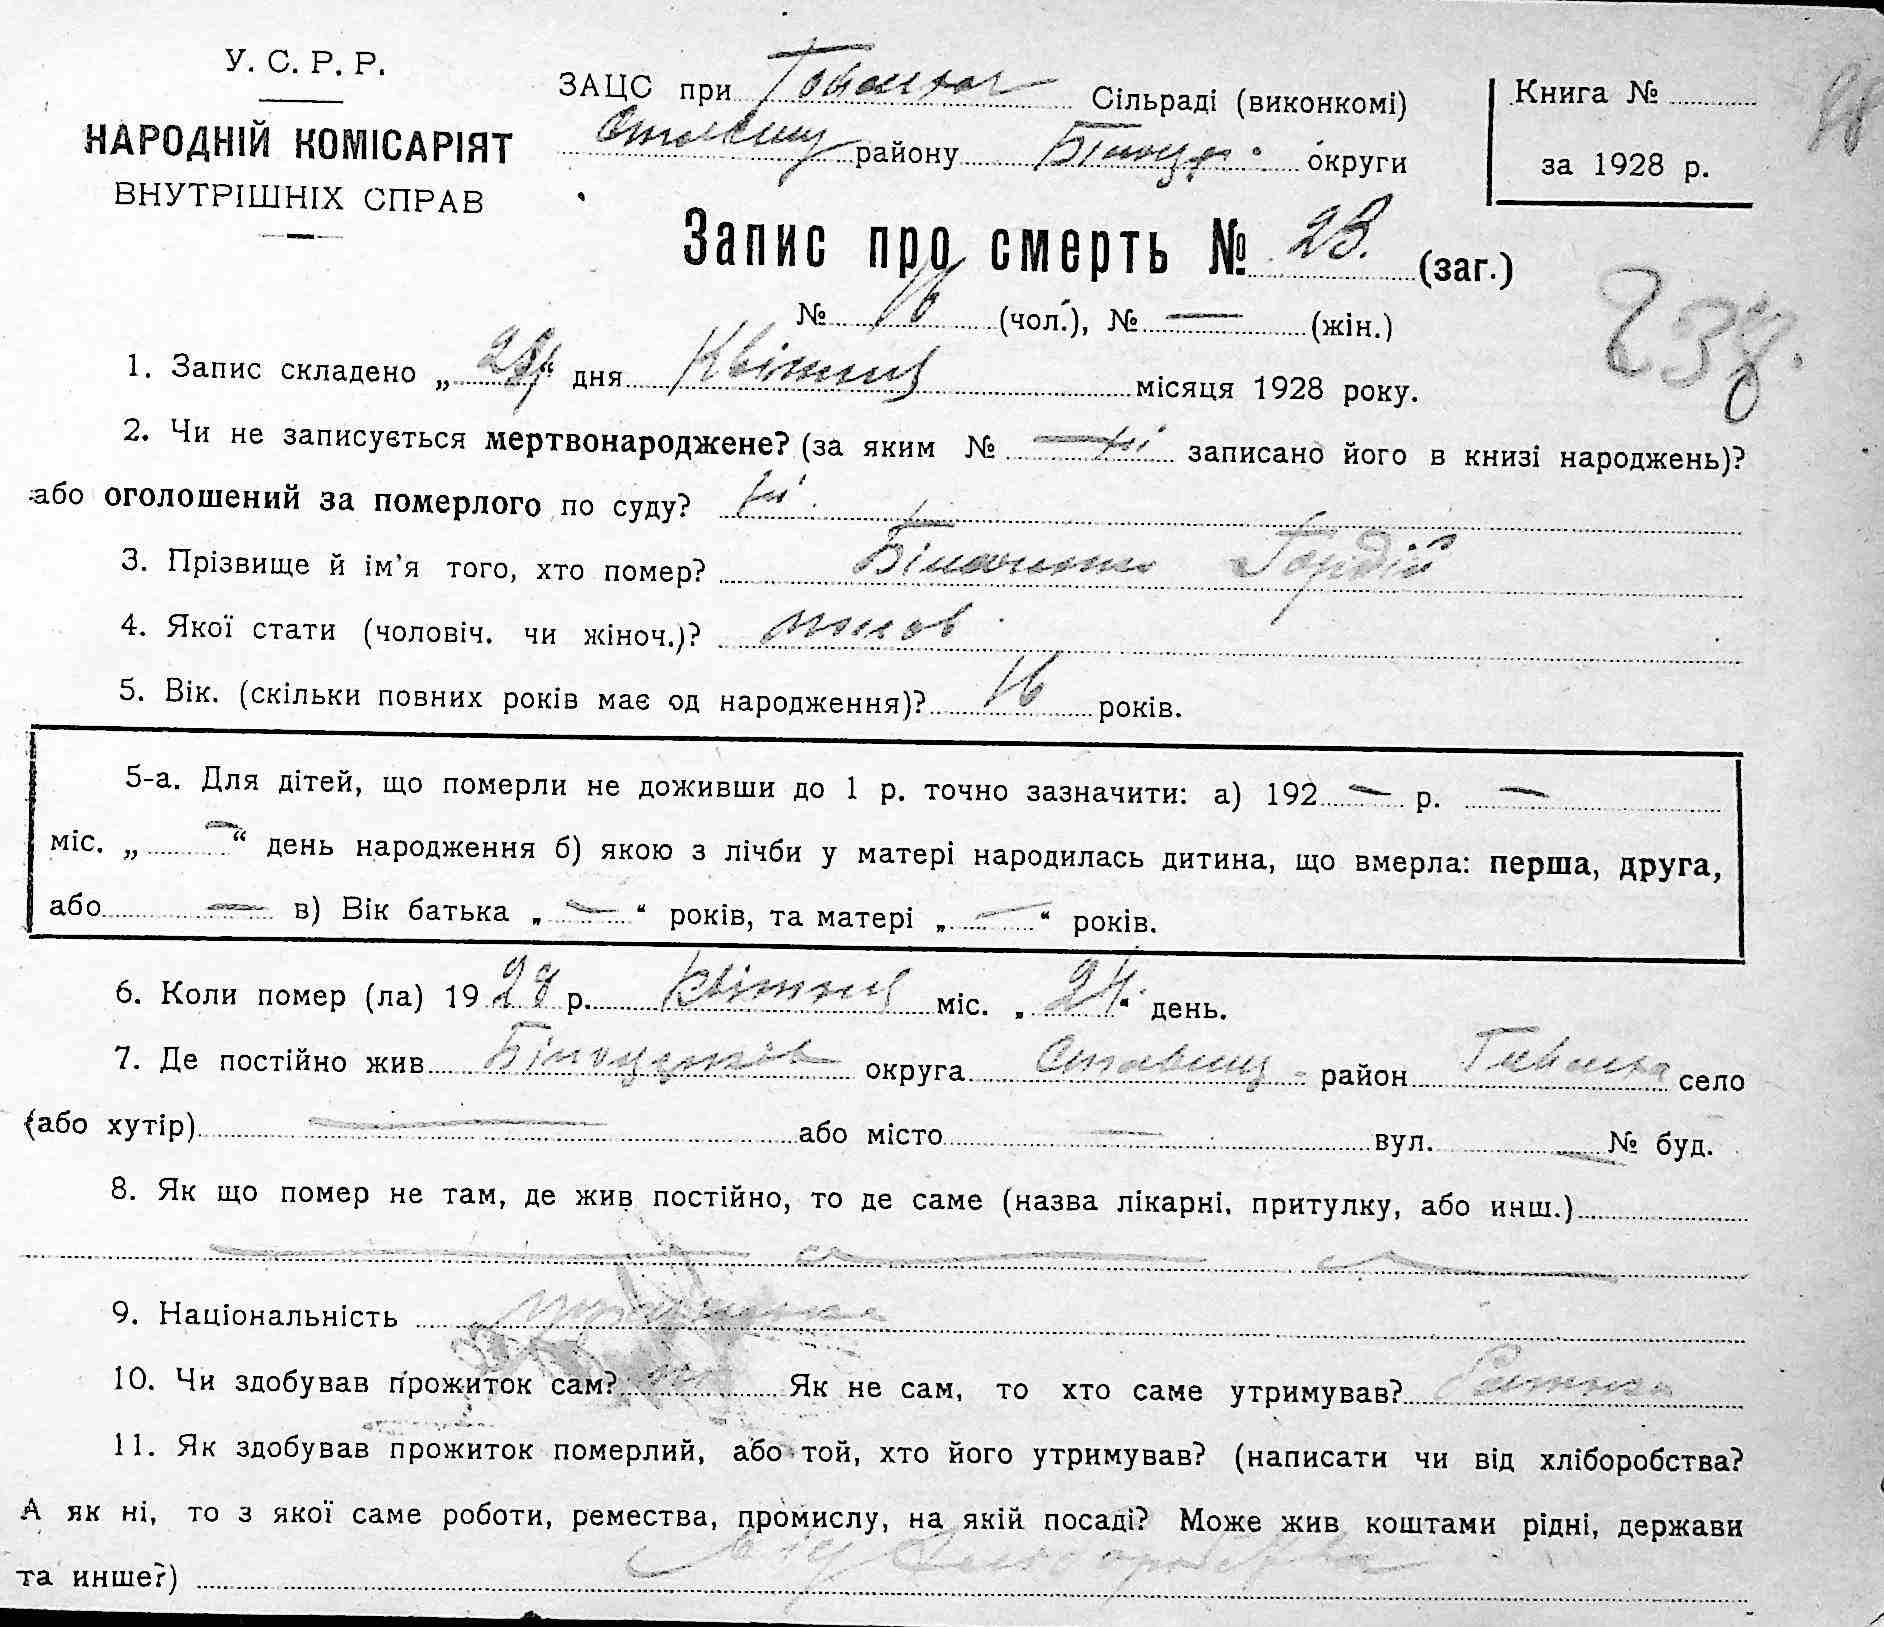 У. С. Р. Р.
НАРОДНІЙ КОМІСАРІЯТ
ВНУТРІШНІХ СПРАВ
ЗАЦС при Сільраді (виконкомі)
району округи
Книга №
за 1928 р.
98
Запис про смерть № 28. (заг.)
№ 16 (чол.), № — (жін.)
238.
1. Запис складено „ “ дня Квітня місяця 1928 року.
2. Чи не записується мертвонароджене? (за яким № — ні записано його в книзі народжень)?
або оголошений за померлого по суду? ні.
3. Прізвище й ім'я того, хто помер? Гордій
4. Якої стати (чоловіч. чи жіноч.)?
5. Вік. (скільки повних років має од народження)? 16 років.
5-а. Для дітей, що померли не доживши до 1 р. точно зазначити: а) 192 — р. —
міс. „ — “ день народження б) якою з лічби у матері народилась дитина, що вмерла: перша, друга,
або — в) Вік батька „ — “ років, та матері „ — “ років.
6. Коли помер (ла) 1928 р. Квітня міс. „ 24 “ день.
7. Де постійно жив Білоцерків округа Ставищ район село
(або хутір) — або місто — вул. — № буд.
8. Як що помер не там, де жив постійно, то де саме (назва лікарні, притулку, або инш.)
9. Національність
10. Чи здобував прожиток сам? Як не сам, то хто саме утримував?
11. Як здобував прожиток померлий, або той, хто його утримував? (написати чи від хліборобства?
А як ні, то з якої саме роботи, ремества, промислу, на якій посаді? Може жив коштами рідні, держави
та инше?) Від хліборобства